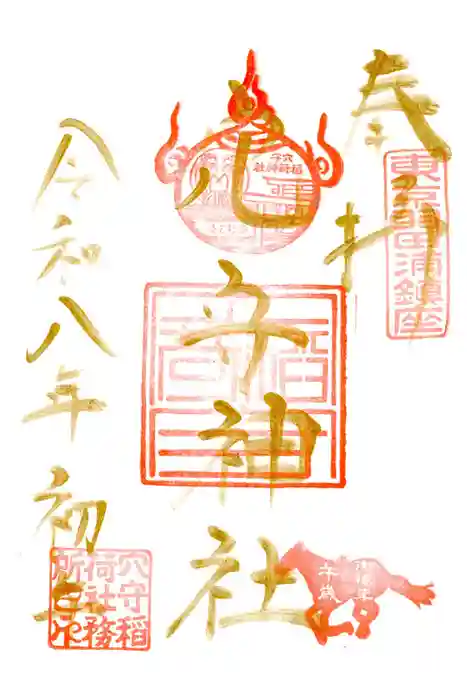 奉拝
東京羽田浦鎮座
穴守神社
穴守稲荷神社
令和八年初午
穴守稲
荷社務
所之印
午歳